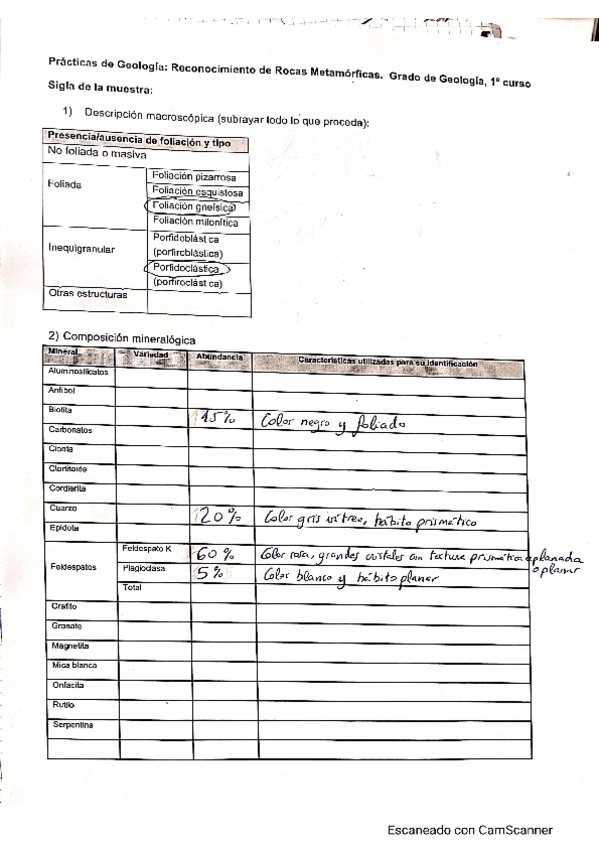 Prácticas de Geología: Reconocimiento de Rocas Metamórficas. Grado de Geología, 1º curso
Sigla de la muestra:
1) Descripción macroscópica (subrayar todo lo que proceda):
Presencia/ausencia de foliación y tipo
No foliada o masiva
Foliada
Foliación pizarrosa
Foliación esquistosa
Foliación gneísica
Foliación milonítica
Inequigranular
Porfidoblástica
(porfiroblástica)
Porfidoclástica
(porfiroclástica)
Otras estructuras
2) Composición mineralógica
Mineral Variedad Abundancia Características utilizadas para su identificación
Alumnosilicatos
Anfíbol
Biotita 15% Color negro y foliado
Carbonatos
Clorita
Cloritoide
Cordierita
Cuarzo 20% Color gris vitreo, hábito prismático
Epidota
Feldespatos
Feldespato K 60% Color rosa, grandes cristales con textura prismática aplanada
o planar
Plagioclasa 5% Color blanco y hábito planar
Total
Grafito
Granate
Magnetita
Mica blanca
Onfacita
Rutilo
Serpentina
Escaneado con CamScanner